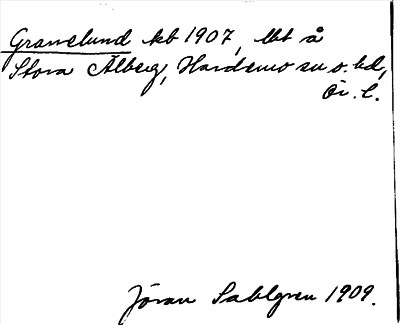 Granelund kb 1907, lbt å
Stora Älberg, Hardemo sn o. hd,
Ör. l.
Jöran Sahlgren 1909.